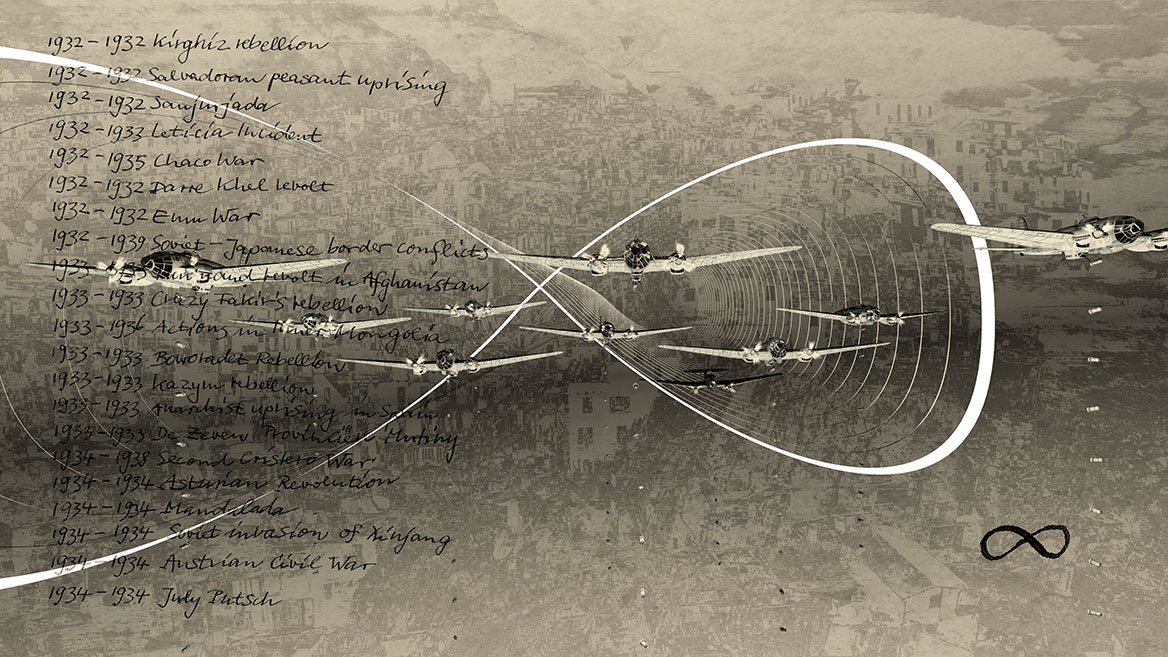 1932 – 1932 Kirghiz rebellion
1932 – 1932 Salvadoran peasant uprising
1932 – 1932 Sanjurjada
1932 – 1933 Leticia Incident
1932 – 1935 Chaco War
1932 – 1932 Darre Khel revolt
1932 – 1932 Emu War
1932 – 1939 Soviet – Japanese border conflicts
1933 – 1933 revolt in Afghanistan
1933 – 1933 Crazy Fakir's rebellion
1933 – 1936 Actions in Inner Mongolia
1933 – 1933 Boworadet Rebellion
1933 – 1933 Kazym rebellion
1933 – 1933 Anarchist uprising in Spain
1933 – 1933 De Zeven Provinciën Mutiny
1934 – 1938 Second Cristero War
1934 – 1934 Asturian Revolution
1934 – 1934 Mandilada
1934 – 1934 Soviet invasion of Xinjang
1934 – 1934 Austrian Civil War
1934 – 1934 July Putsch